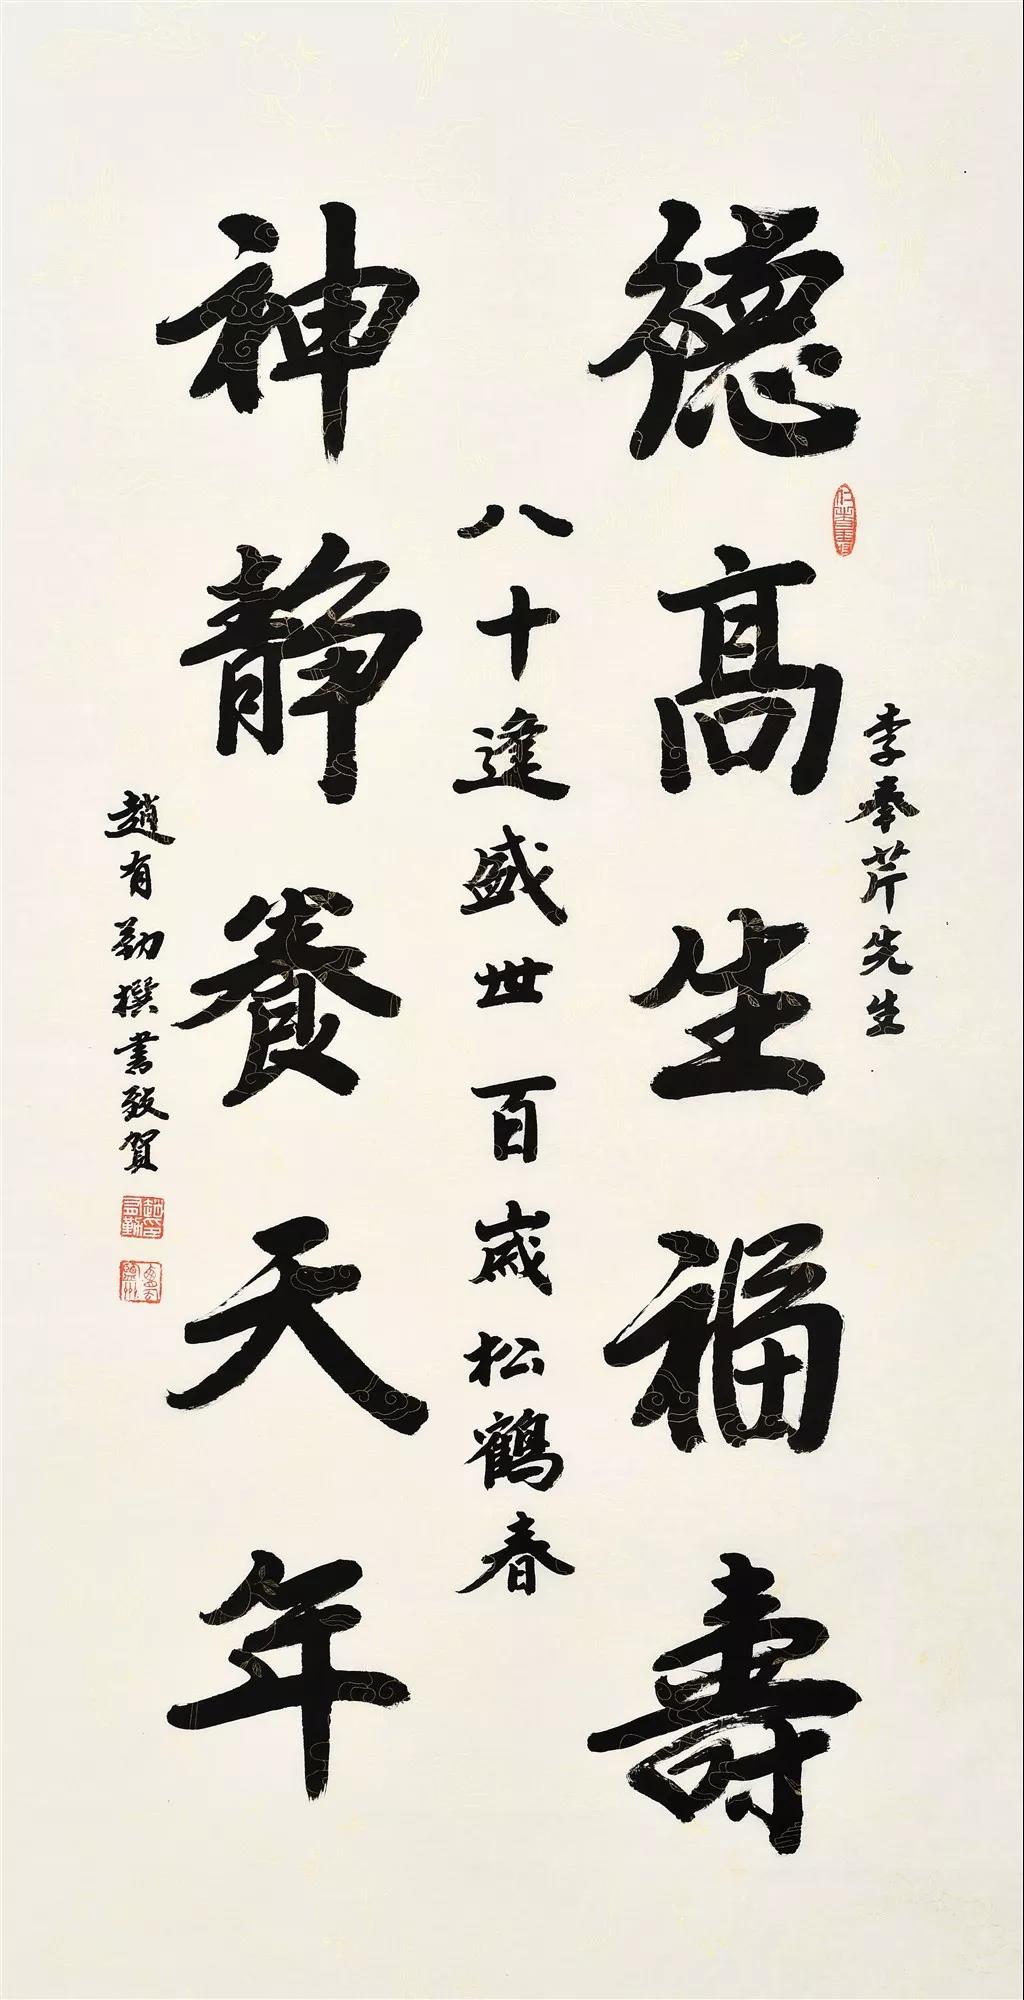 李奉芹先生
德髙生福壽
八十逢盛世百歲松鶴春
神静養天年
趙有勤撰書致賀
趙有勤印